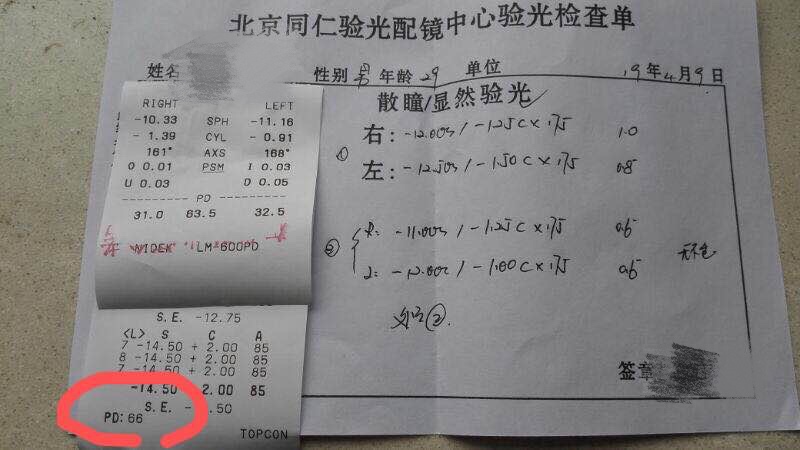 北京同仁验光配镜中心验光检查单
姓名 性别 男 年龄 29 单位 19年4月9日
散瞳/显然验光
① 右: -12.00s / -1.25c × 175 1.0
左: -12.50s / -1.50c × 175 0.8
② R: -11.00s / -1.25c × 175 0.6
L: -12.00s / -1.00c × 175 0.6
②.
签章
RIGHT LEFT
-10.33 SPH -11.16
- 1.39 CYL - 0.91
161° AXS 168°
O 0.01 PSM I 0.03
U 0.03 D 0.05
--------- PD ---------
31.0 63.5 32.5
NIDEK LM-600PD
S.E. -12.75
<L> S C A
7 -14.50 + 2.00 85
8 -14.50 + 2.00 85
7 -14.50 + 2.00 85
-14.50 2.00 85
S.E. - .50
PD: 66
TOPCON